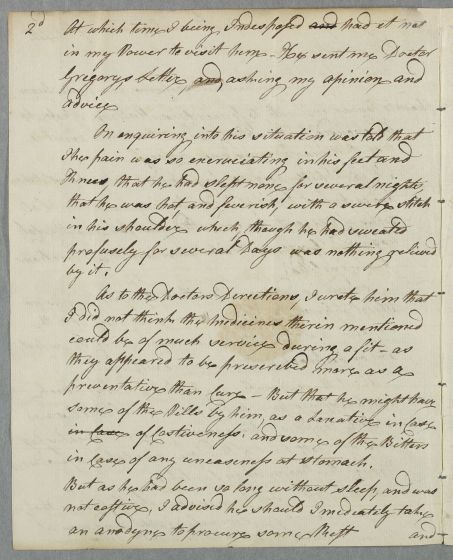 2d At which time I being Indesposed and had it not
in my Power to visit him - He sent me Doctor
Gregorys letter, and asking my opinion and
advice
On enquiring into his situation was told that
The pain was so excruciating in his feet and
Knees, that he had slept none for several nights,
that he was hot, and feverish, with a severe stitch
in his shoulder which though he had sweated
profusely for several Days was nothing relieved
by it.
As to the Doctors Directions, I wrote him that
I did not think the medicines therein mentioned
could be of much service during a fit - as
they appeared to be prescrebed more as a
preventative than Cure - But that he might have
some of the Pills by him, as a Laxative in case
in case of Costiveness. and some of the Bitters
in Case of any uneasiness at stomach.
But as he had been so long without sleep, and was
not costive, I advised he should Imediately take
an anodyne to procure some Rest
and